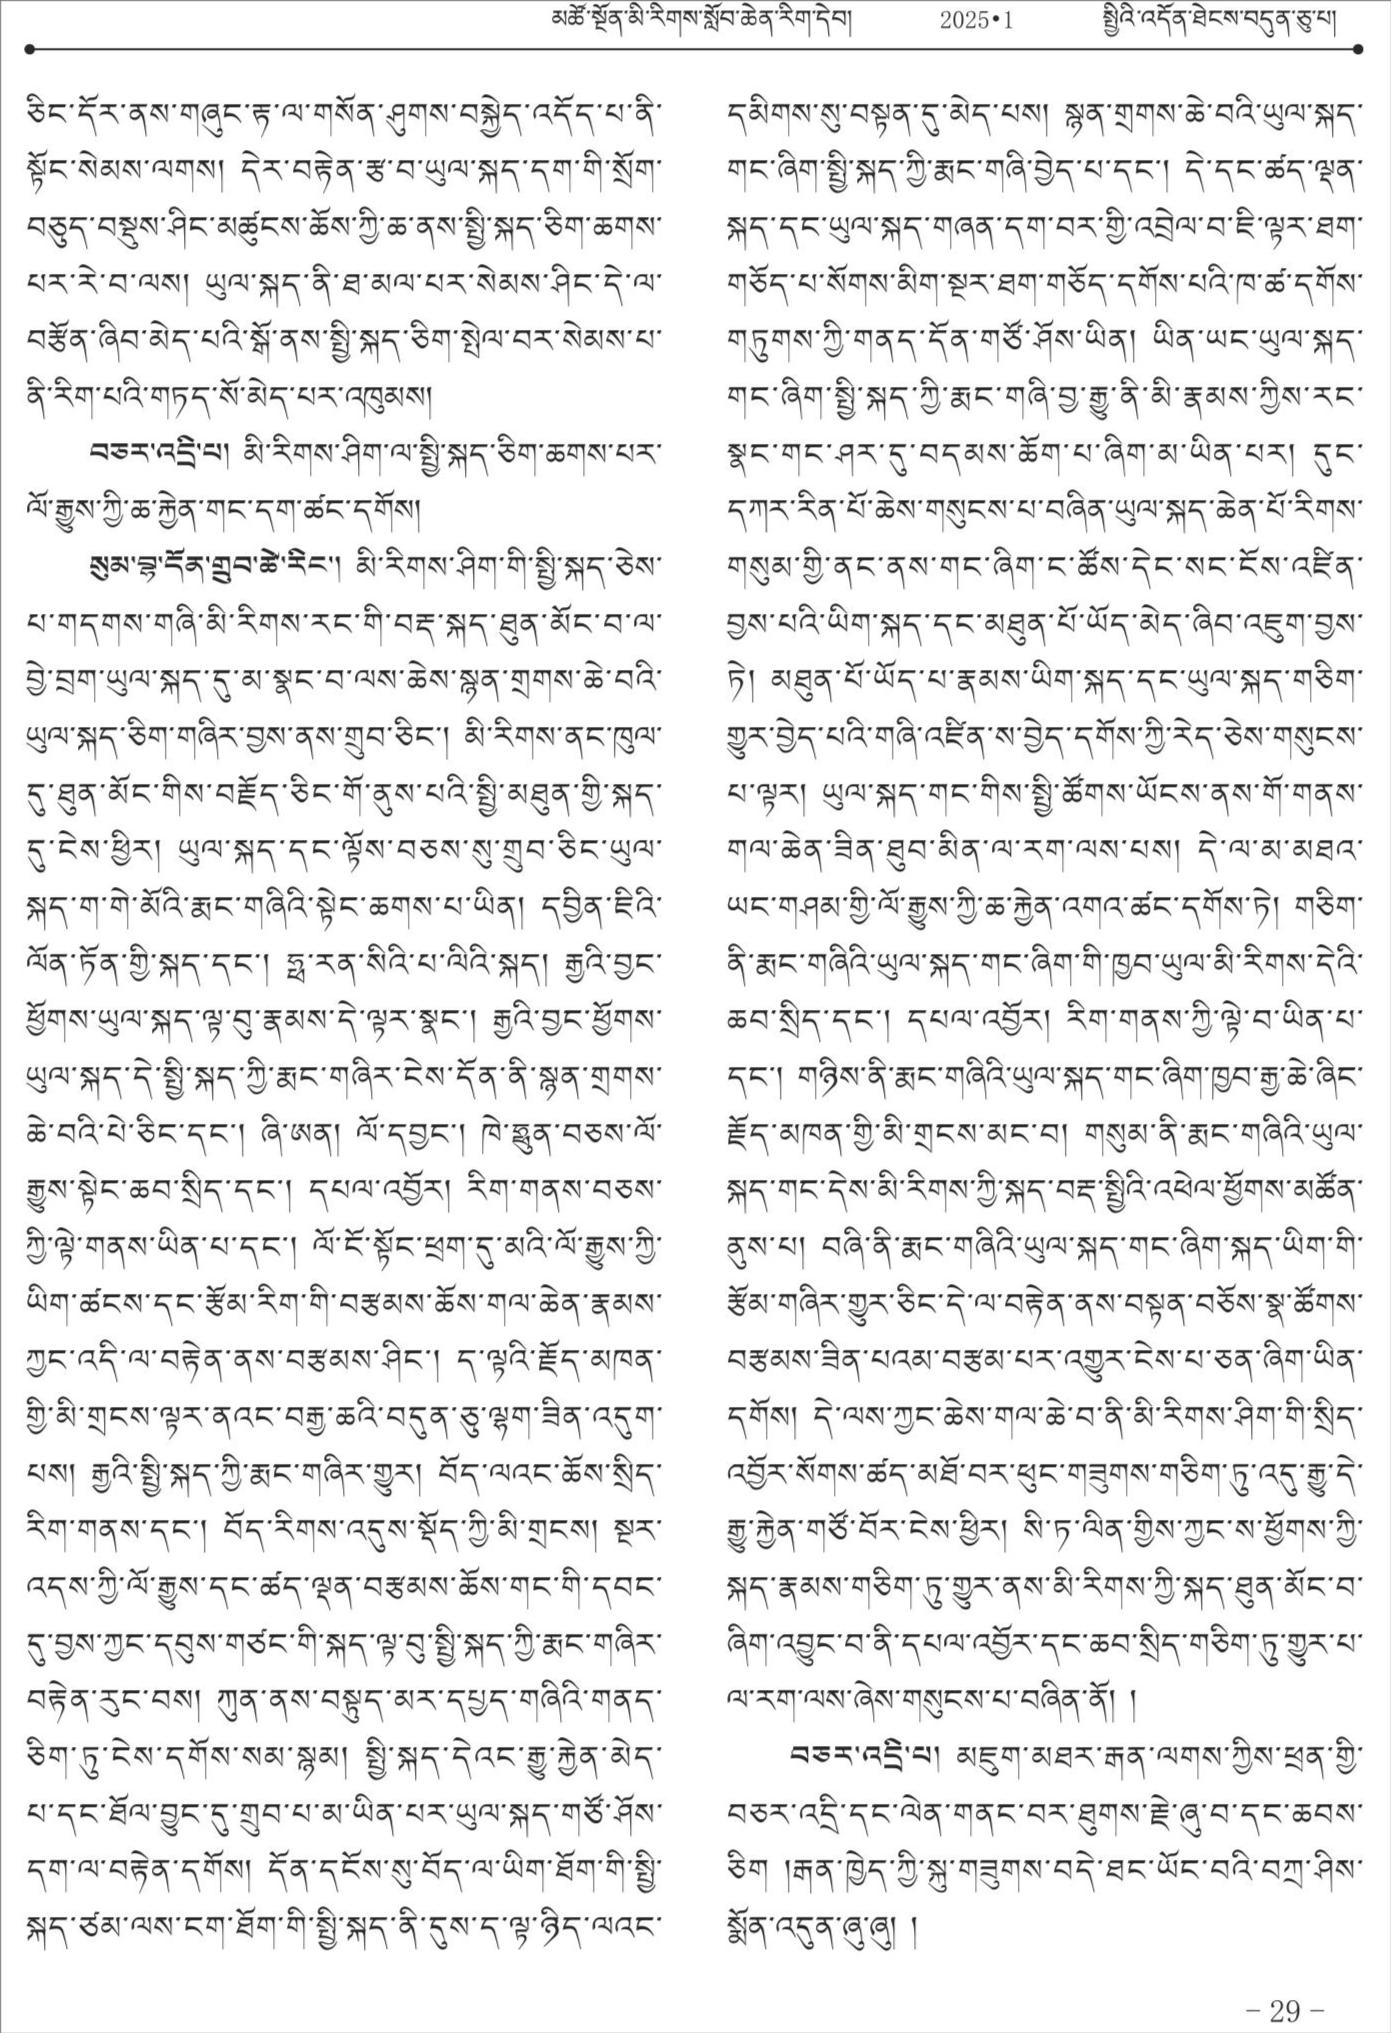 མཚོ་སྔོན་མི་རིགས་སློབ་ཆེན་རིག་དེབ། 2025•1 སྤྱིའི་འདོན་ཐེངས་བདུན་ཅུ་པ།
ཅིང་དོར་ནས་གཞུང་རྟ་ལ་གསོན་ཤུགས་བསྐྱེད་འདོད་པ་ནི་
སྟོང་སེམས་ལགས། དེར་བརྟེན་རྩ་བ་ཡུལ་སྐད་དག་གི་སྲོག་
བཅུད་བསྡུས་ཤིང་མཚུངས་ཆོས་ཀྱི་ཆ་ནས་སྤྱི་སྐད་ཅིག་ཆགས་
པར་རེ་བ་ལས། ཡུལ་སྐད་ནི་ཐ་མལ་པར་སེམས་ཤིང་དེ་ལ་
བརྩོན་ཞིབ་མེད་པའི་སྒོ་ནས་སྤྱི་སྐད་ཅིག་སྤེལ་བར་སེམས་པ་
ནི་རིག་པའི་གཏད་སོ་མེད་པར་འཁུམས།
བཅར་འདྲི་པ། མི་རིགས་ཤིག་ལ་སྤྱི་སྐད་ཅིག་ཆགས་པར་
ལོ་རྒྱུས་ཀྱི་ཆ་རྐྱེན་གང་དག་ཚང་དགོས།
སུམ་བྷ་དོན་གྲུབ་ཚེ་རིང་། མི་རིགས་ཤིག་གི་སྤྱི་སྐད་ཅེས་
པ་གདགས་གཞི་མི་རིགས་རང་གི་བརྡ་སྐད་ཐུན་མོང་བ་ལ་
བྱེ་བྲག་ཡུལ་སྐད་དུ་མ་སྣང་བ་ལས་ཆེས་སྙན་གྲགས་ཆེ་བའི་
ཡུལ་སྐད་ཅིག་གཞིར་བྱས་ནས་གྲུབ་ཅིང་། མི་རིགས་ནང་ཁུལ་
དུ་ཐུན་མོང་གིས་བརྗོད་ཅིང་གོ་ནུས་པའི་སྤྱི་མཐུན་གྱི་སྐད་
དུ་ངེས་ཕྱིར། ཡུལ་སྐད་དང་ལྟོས་བཅས་སུ་གྲུབ་ཅིང་ཡུལ་
སྐད་ག་གེ་མོའི་རྨང་གཞིའི་སྟེང་ཆགས་པ་ཡིན། དབྱིན་ཇིའི་
ལོན་ཏོན་གྱི་སྐད་དང་། ཧྥ་རན་སིའི་པ་ལིའི་སྐད། རྒྱའི་བྱང་
ཕྱོགས་ཡུལ་སྐད་ལྟ་བུ་རྣམས་དེ་ལྟར་སྣང་། རྒྱའི་བྱང་ཕྱོགས་
ཡུལ་སྐད་དེ་སྤྱི་སྐད་ཀྱི་རྨང་གཞིར་ངེས་དོན་ནི་སྙན་གྲགས་
ཆེ་བའི་པེ་ཅིང་དང་། ཞི་ཨན། ལོ་དབྱང་། ཁེ་ཧྥུན་བཅས་ལོ་
རྒྱུས་སྟེང་ཆབ་སྲིད་དང་། དཔལ་འབྱོར། རིག་གནས་བཅས་
ཀྱི་ལྟེ་གནས་ཡིན་པ་དང་། ལོ་ངོ་སྟོང་ཕྲག་དུ་མའི་ལོ་རྒྱུས་ཀྱི་
ཡིག་ཚངས་དང་རྩོམ་རིག་གི་བརྩམས་ཆོས་གལ་ཆེན་རྣམས་
ཀྱང་འདི་ལ་བརྟེན་ནས་བརྩམས་ཤིང་། ད་ལྟའི་རྗོད་མཁན་
གྱི་མི་གྲངས་ལྟར་ནའང་བརྒྱ་ཆའི་བདུན་ཅུ་ལྷག་ཟིན་འདུག་
པས། རྒྱའི་སྤྱི་སྐད་ཀྱི་རྨང་གཞིར་གྱུར། བོད་ལའང་ཆོས་སྲིད་
རིག་གནས་དང་། བོད་རིགས་འདུས་སྡོད་ཀྱི་མི་གྲངས། སྔར་
འདས་ཀྱི་ལོ་རྒྱུས་དང་ཚད་ལྡན་བརྩམས་ཆོས་གང་གི་དབང་
དུ་བྱས་ཀྱང་དབུས་གཙང་གི་སྐད་ལྟ་བུ་སྤྱི་སྐད་ཀྱི་རྨང་གཞིར་
བརྟེན་རུང་བས། ཀུན་ནས་བསྟུད་མར་དཔྱད་གཞིའི་གནད་
ཅིག་ཏུ་ངེས་དགོས་སམ་སྙམ། སྤྱི་སྐད་དེའང་རྒྱུ་རྐྱེན་མེད་
པ་དང་ཐོལ་བྱུང་དུ་གྲུབ་པ་མ་ཡིན་པར་ཡུལ་སྐད་གཙོ་ཤོས་
དག་ལ་བརྟེན་དགོས། དོན་དངོས་སུ་བོད་ལ་ཡིག་ཐོག་གི་སྤྱི་
སྐད་ཙམ་ལས་ངག་ཐོག་གི་སྤྱི་སྐད་ནི་དུས་ད་ལྟ་ཉིད་ལའང་
དམིགས་སུ་བསྟན་དུ་མེད་པས། སྙན་གྲགས་ཆེ་བའི་ཡུལ་སྐད་
གང་ཞིག་སྤྱི་སྐད་ཀྱི་རྨང་གཞི་བྱེད་པ་དང་། དེ་དང་ཚད་ལྡན་
སྐད་དང་ཡུལ་སྐད་གཞན་དག་བར་གྱི་འབྲེལ་བ་ཇི་ལྟར་ཐག་
གཅོད་པ་སོགས་མིག་སྔར་ཐག་གཅོད་དགོས་པའི་ཁ་ཚ་དགོས་
གཏུགས་ཀྱི་གནད་དོན་གཙོ་ཤོས་ཡིན། ཡིན་ཡང་ཡུལ་སྐད་
གང་ཞིག་སྤྱི་སྐད་ཀྱི་རྨང་གཞི་བྱ་རྒྱུ་ནི་མི་རྣམས་ཀྱིས་རང་
སྣང་གང་ཤར་དུ་བདམས་ཆོག་པ་ཞིག་མ་ཡིན་པར། དུང་
དཀར་རིན་པོ་ཆེས་གསུངས་པ་བཞིན་ཡུལ་སྐད་ཆེན་པོ་རིགས་
གསུམ་གྱི་ནང་ནས་གང་ཞིག་ང་ཚོས་དེང་སང་ངོས་འཛིན་
བྱས་པའི་ཡིག་སྐད་དང་མཐུན་པོ་ཡོད་མེད་ཞིབ་འཇུག་བྱས་
ཏེ། མཐུན་པོ་ཡོད་པ་རྣམས་ཡིག་སྐད་དང་ཡུལ་སྐད་གཅིག་
གྱུར་བྱེད་པའི་གཞི་འཛིན་ས་བྱེད་དགོས་ཀྱི་རེད་ཅེས་གསུངས་
པ་ལྟར། ཡུལ་སྐད་གང་གིས་སྤྱི་ཚོགས་ཡོངས་ནས་གོ་གནས་
གལ་ཆེན་ཟིན་ཐུབ་མིན་ལ་རག་ལས་པས། དེ་ལ་མ་མཐའ་
ཡང་གཤམ་གྱི་ལོ་རྒྱུས་ཀྱི་ཆ་རྐྱེན་འགའ་ཚང་དགོས་ཏེ། གཅིག་
ནི་རྨང་གཞིའི་ཡུལ་སྐད་གང་ཞིག་གི་ཁྱབ་ཡུལ་མི་རིགས་དེའི་
ཆབ་སྲིད་དང་། དཔལ་འབྱོར། རིག་གནས་ཀྱི་ལྟེ་བ་ཡིན་པ་
དང་། གཉིས་ནི་རྨང་གཞིའི་ཡུལ་སྐད་གང་ཞིག་ཁྱབ་རྒྱ་ཆེ་ཞིང་
རྗོད་མཁན་གྱི་མི་གྲངས་མང་བ། གསུམ་ནི་རྨང་གཞིའི་ཡུལ་
སྐད་གང་དེས་མི་རིགས་ཀྱི་སྐད་བརྡ་སྤྱིའི་འཕེལ་ཕྱོགས་མཚོན་
ནུས་པ། བཞི་ནི་རྨང་གཞིའི་ཡུལ་སྐད་གང་ཞིག་སྐད་ཡིག་གི་
རྩོམ་གཞིར་གྱུར་ཅིང་དེ་ལ་བརྟེན་ནས་བསྟན་བཅོས་སྣ་ཚོགས་
བརྩམས་ཟིན་པའམ་བརྩམ་པར་འགྱུར་ངེས་པ་ཅན་ཞིག་ཡིན་
དགོས། དེ་ལས་ཀྱང་ཆེས་གལ་ཆེ་བ་ནི་མི་རིགས་ཤིག་གི་སྲིད་
འབྱོར་སོགས་ཚད་མཐོ་བར་ཕུང་གཟུགས་གཅིག་ཏུ་འདུ་རྒྱུ་དེ་
རྒྱུ་རྐྱེན་གཙོ་བོར་ངེས་ཕྱིར། སི་ཏ་ལིན་གྱིས་ཀྱང་ས་ཕྱོགས་ཀྱི་
སྐད་རྣམས་གཅིག་ཏུ་གྱུར་ནས་མི་རིགས་ཀྱི་སྐད་ཐུན་མོང་བ་
ཞིག་འབྱུང་བ་ནི་དཔལ་འབྱོར་དང་ཆབ་སྲིད་གཅིག་ཏུ་གྱུར་པ་
ལ་རག་ལས་ཞེས་གསུངས་པ་བཞིན་ནོ། །
བཅར་འདྲི་པ། མཇུག་མཐར་རྒན་ལགས་ཀྱིས་ཕྲན་གྱི་
བཅར་འདྲི་དང་ལེན་གནང་བར་ཐུགས་རྗེ་ཞུ་བ་དང་ཆབས་
ཅིག །རྒན་ཁྱེད་ཀྱི་སྐུ་གཟུགས་བདེ་ཐང་ཡོང་བའི་བཀྲ་ཤིས་
སྨོན་འདུན་ཞུ་ཞུ། །
– 29 –